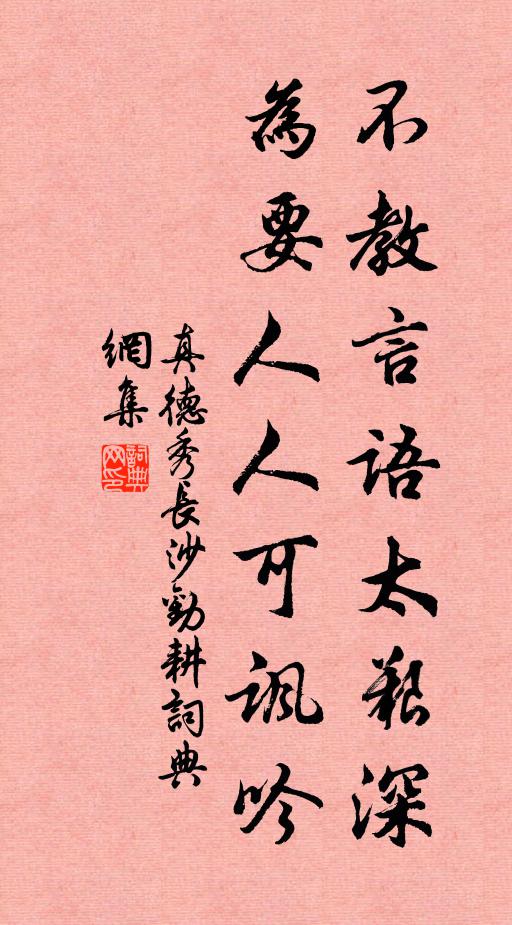 不教言語太艱深
為要人人可諷吟
真德秀長沙勸耕詞典
網集
詞典網印